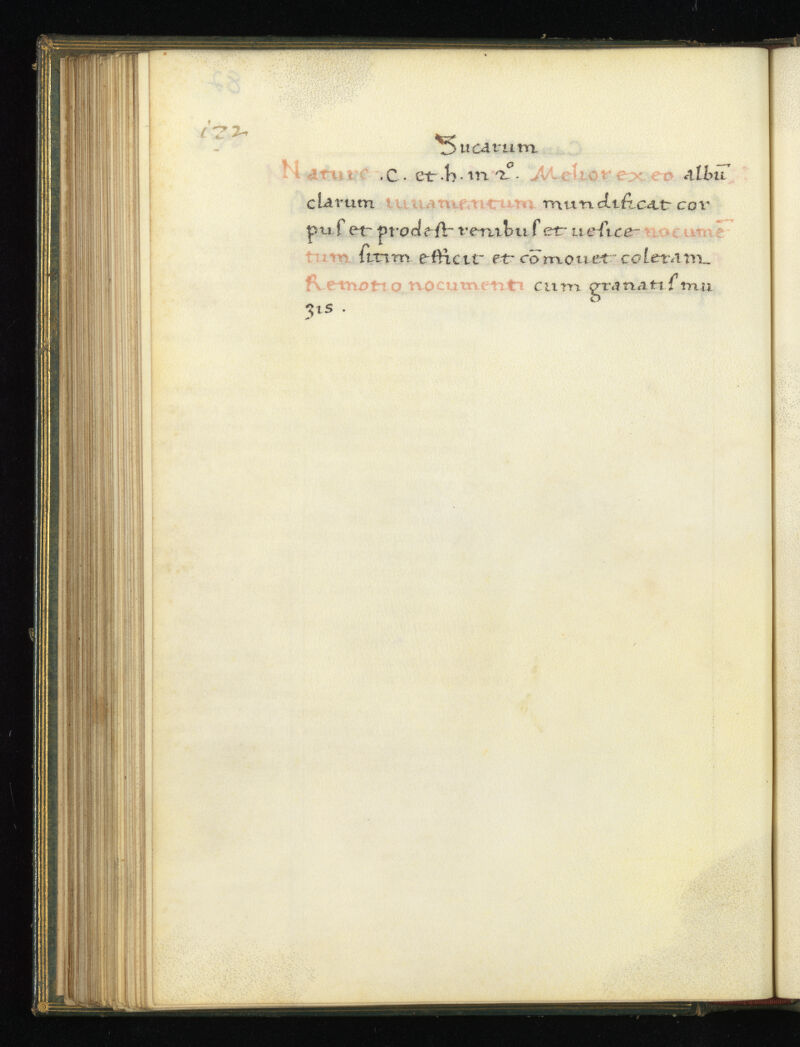 172
Sucarum
Nature .c. et .h. in 2º. Melior ex eo albū
clarum iuuamentum mundificat cor
pus et prodest renibus et uesice nocumē
tum sitim efficit et cōmouet coleram
Remotio nocumenti cum granatis mu
zis .